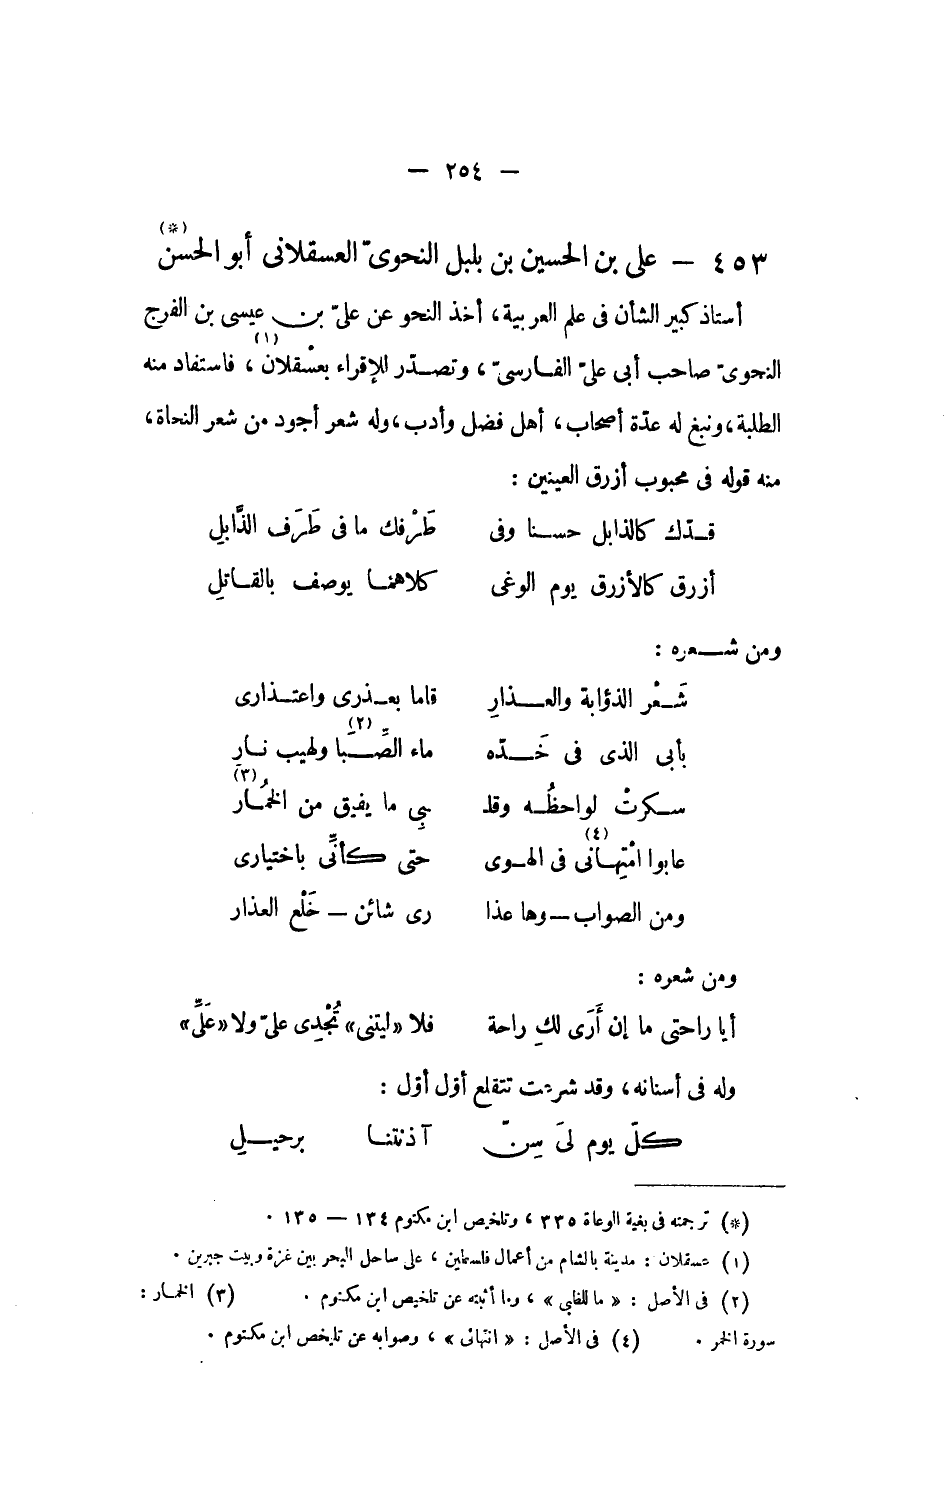 — ٢٥٤ —
٤٥٣ — على بن الحسين بن بلبل النحوىّ العسقلانى أبو الحسن (*)
أستاذ كبير الشأن فى علم العربية، أخذ النحو عن علىّ بن عيسى بن الفرج
النحوىّ صاحب أبى علىّ الفارسىّ، وتصدّر للإقراء بعسْقلان (١)، فاستفاد منه
الطلبة، ونبغ له عدّة أصحاب، أهل فضل وأدب، وله شعر أجود من شعر النحاة،
منه قوله فى محبوب أزرق العينين :
قدّك كالذابل حسنا وفى طَرْفك ما فى طَرَف الذَّابلِ
أزرق كالأزرق يوم الوغى كلاهما يوصف بالقاتلِ
ومن شعره :
شَعْر الذؤابة والعذارِ قاما بعذرى واعتذارى
بأبى الذى فى خَدّه ماء الصِّبَا (٢) ولهيب نارِ
سكرتْ لواحظُه وقلـ ـبِى ما يفيق من الخُمَار (٣)
عابوا امْتِهانى (٤) فى الهوى حتى كأنِّى باختيارى
ومن الصواب — وها عذا رى شائن — خَلْع العذار
ومن شعره :
أيا راحتى ما إن أَرَى لكِ راحة فلا «ليتنى» تُجْدِى علىّ ولا «عَلِّى»
وله فى أسنانه، وقد شرعت تتقلع أوّل أوّل :
كلّ يوم لىَ سِنّ آذنتنا برحيلِ
(*) ترجمته فى بغية الوعاة ٣٣٥ ، وتلخيص ابن مكتوم ١٣٤ — ١٣٥ .
(١) عسقلان : مدينة بالشام من أعمال فلسطين ، على ساحل البحر بين غزة وبيت جبرين .
(٢) فى الأصل : « ما للقابى » ، وما أثبته عن تلخيص ابن مكتوم . (٣) الخمار :
سورة الخمر . (٤) فى الأصل : « انتهائى » ، وصوابه عن تليخص ابن مكتوم .